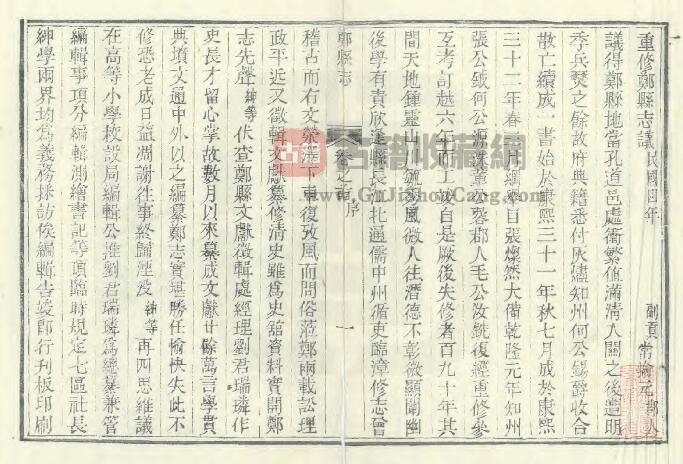 重修鄭縣志議 民國四年 副貢 常瑜元 郡人
議得鄭縣地當孔道邑處衝繁值滿淸入關之後遭明
季兵燹之餘故府典籍悉付灰燼知州何公錫爵收合
散亡續成一書始於康熙三十一年秋七月成於康熙
三十二年春 月綱舉目張燦然大備乾隆元年知州
張公鉞何公源洙董公榕郡人毛公汝銑復經重修參
互考訂越六年而工竣自是厥後失修者百九十年其
間天地鍾靈山 毓秀風微人往潛德不彰微顯闡幽
後學有責欣逢縣長 北通儒中州循吏臨漳修志會
鄭縣志 卷之首 序 一
稽古而右文滎澤下車復攷風而問俗蒞鄭兩載訟理
政平近又徵輯文獻纂修淸史雖爲史舘資料實開鄭
志先聲紳等伏查鄭縣文獻徵輯處經理劉君瑞璘作
史長才留心掌故數月以來纂成文獻廿餘萬言學貫
典墳文通中外以之編纂鄭志實堪勝任愉快失此不
修恐老成日益凋謝往事終歸湮沒 紳等再四思維議
在高等小學校設局編輯公推劉君瑞璘爲總纂兼管
編輯事項分編輯測繪書記等項臨時規定七區社長
紳學兩界均爲義務採訪俟編輯告竣卽行刋板印刷
古籍收藏网
www.GuJiShouCang.com